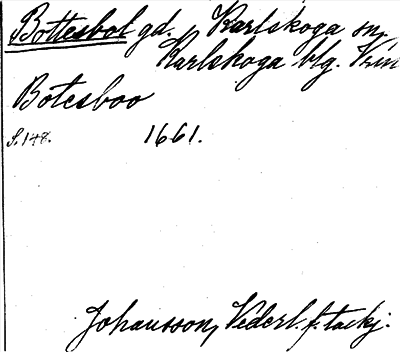 Bottesbol gd. Karlskoga sn.
Karlskoga blg.
Botesboo
S. 148. 1661.
Johansson, Vederl. f. tackj.